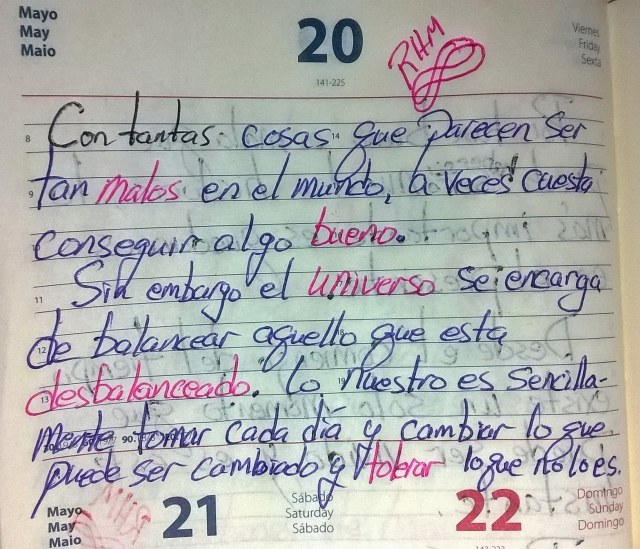 Mayo
May
Maio
20
141-225
Viernes
Friday
Sexta
RHM
8
Con tantas cosas que parecen ser
9
tan malos en el mundo, a veces cuesta
conseguir algo bueno.
11
Sin embargo el universo se encarga
12
de balancear aquello que esta
13
desbalanceado. Lo nuestro es sencilla-
mente tomar cada día y cambiar lo que
puede ser cambiado y tolerar lo que no lo es.
Mayo
May
Maio
21
Sábado
Saturday
Sábado
22
Domingo
Sunday
Domingo